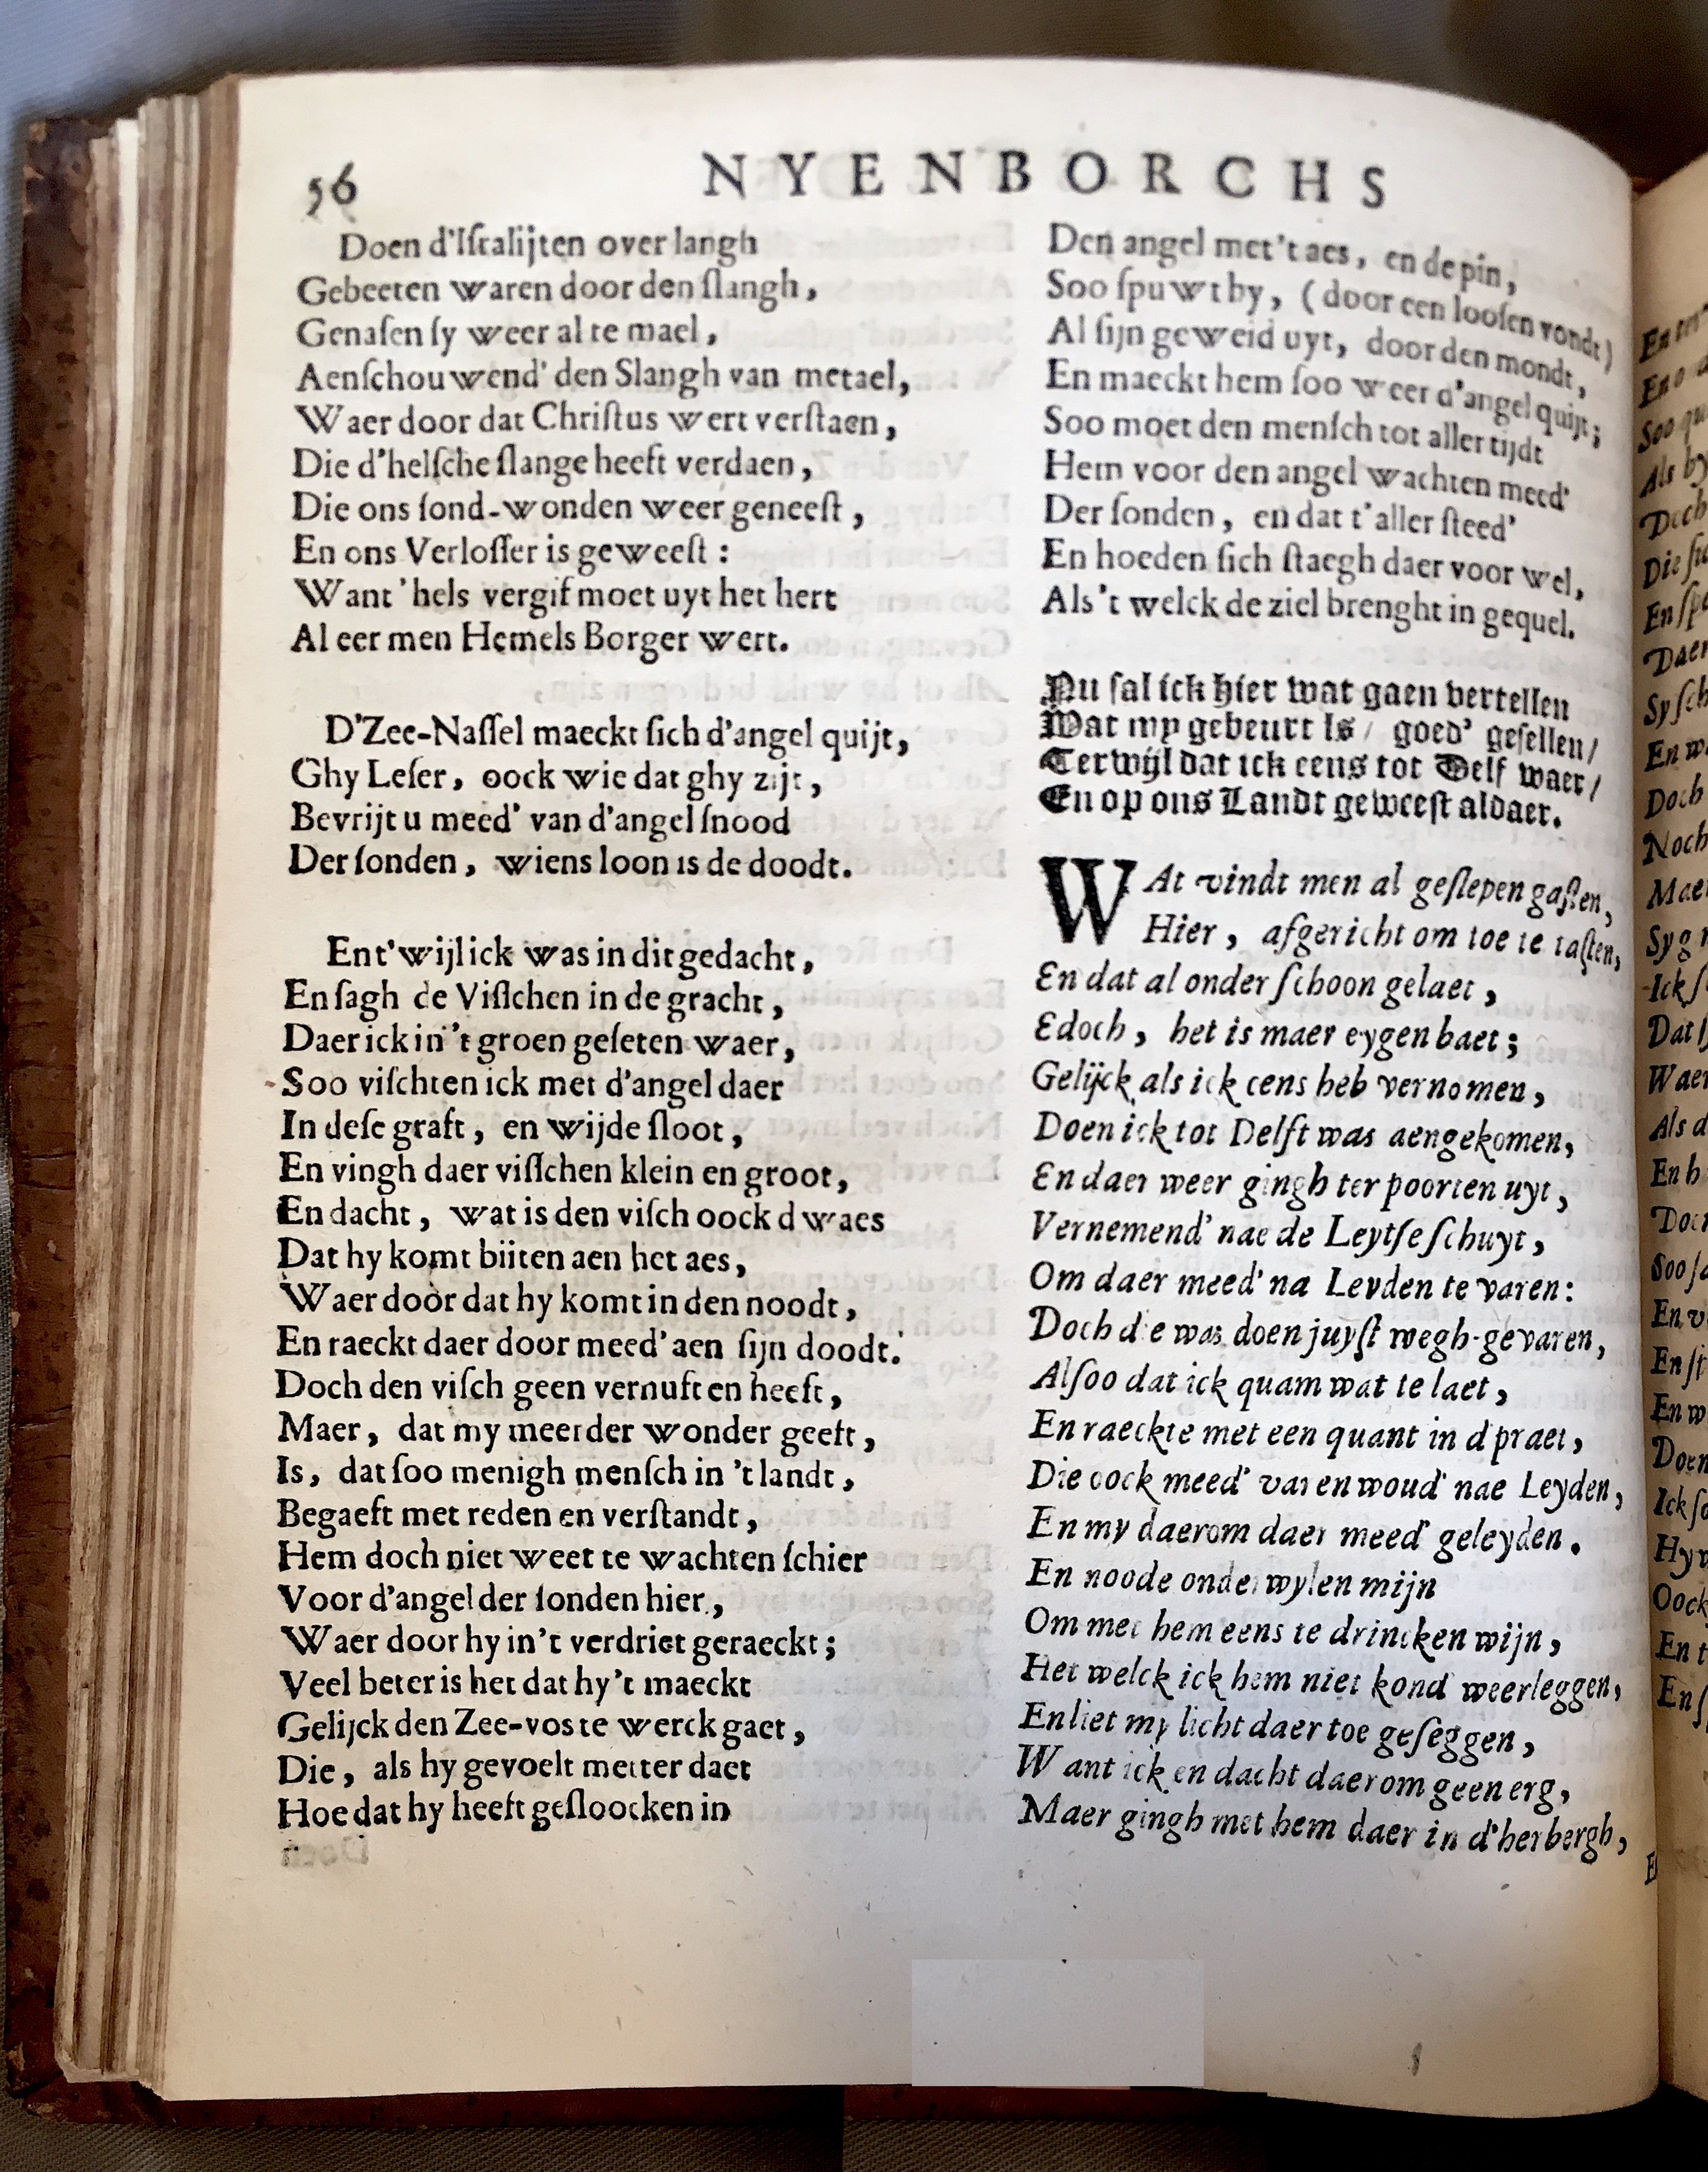 56
NYENBORCHS
Doen d'Iſralijten over langh
Gebeeten waren door den ſlangh,
Genaſen ſy weer al te mael,
Aenſchouwend' den Slangh van metael,
Waer door dat Chriſtus wert verſtaen,
Die d'helſche ſlange heeft verdaen,
Die ons ſond-wonden weer geneeſt,
En ons Verloſſer is geweeſt:
Want 'hels vergif moet uyt het hert
Al eer men Hemels Borger wert.
D'Zee-Naſſel maeckt ſich d'angel quijt,
Ghy Leſer, oock wie dat ghy zijt,
Bevrijt u meed' van d'angel ſnood
Der ſonden, wiens loon is de doodt.
En t'wijl ick was in dit gedacht,
En ſagh de Viſſchen in de gracht,
Daer ick in 't groen geſeten waer,
Soo viſchten ick met d'angel daer
In deſe graft, en wijde ſloot,
En vingh daer viſſchen klein en groot,
En dacht, wat is den viſch oock dwaes
Dat hy komt biiten aen het aes,
Waer door dat hy komt in den noodt,
En raeckt daer door meed' aen ſijn doodt.
Doch den viſch geen vernuft en heeft,
Maer, dat my meerder wonder geeft,
Is, dat ſoo menigh menſch in 't landt,
Begaeft met reden en verſtandt,
Hem doch niet weet te wachten ſchier
Voor d'angel der ſonden hier,
Waer door hy in't verdriet geraeckt;
Veel beter is het dat hy't maeckt
Gelijck den Zee-vos te werck gaet,
Die, als hy gevoelt metter daet
Hoe dat hy heeft geſloocken in
Den angel met't aes, en de pin,
Soo ſpuwt hy, (door een looſen vondt)
Al ſijn geweid uyt, door den mondt,
En maeckt hem ſoo weer d'angel quijt;
Soo moet den menſch tot aller tijdt
Hem voor den angel wachten meed'
Der ſonden, en dat t'aller ſteed'
En hoeden ſich ſtaegh daer voor wel,
Als 't welck de ziel brenght in gequel.
Nu ſal ick hier wat gaen vertellen
Wat my gebeurt is/ goed' geſellen/
Terwijl dat ick eens tot Delf waer/
En op ons Landt geweeſt aldaer.
WAt vindt men al geſlepen gaſten,
Hier, afgericht om toe te taſten,
En dat al onder ſchoon gelaet,
Edoch, het is maer eygen baet;
Gelijck als ick eens heb vernomen,
Doen ick tot Delft was aengekomen,
En daer weer gingh ter poorten uyt,
Vernemend' nae de Leytſe ſchuyt,
Om daer meed' na Leyden te varen:
Doch die was doen juyſt wegh-gevaren,
Alſoo dat ick quam wat te laet,
En raeckte met een quant in d praet,
Die oock meed' varen woud' nae Leyden,
En my daerom daer meed' geleyden.
En noode onderwylen mijn
Om met hem eens te drincken wijn,
Het welck ick hem niet kond' weerleggen,
En liet my licht daer toe geſeggen,
Want ick en dacht daerom geen erg,
Maer gingh met hem daer in d'herbergh,